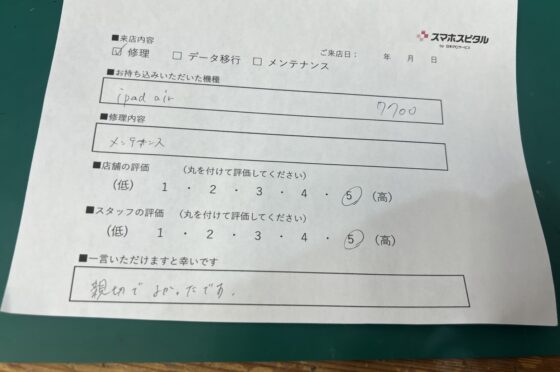 スマホスピタル
■来店内容
ご来店日： 年 月 日
☑ 修理 □ データ移行 □ メンテナンス
■お持ち込みいただいた機種
ipad air 7700
■修理内容
メンテナンス
■店舗の評価 (丸を付けて評価してください)
(低) 1 ・ 2 ・ 3 ・ 4 ・ 5 (高)
■スタッフの評価 (丸を付けて評価してください)
(低) 1 ・ 2 ・ 3 ・ 4 ・ 5 (高)
■一言いただけますと幸いです
親切でよかったです。